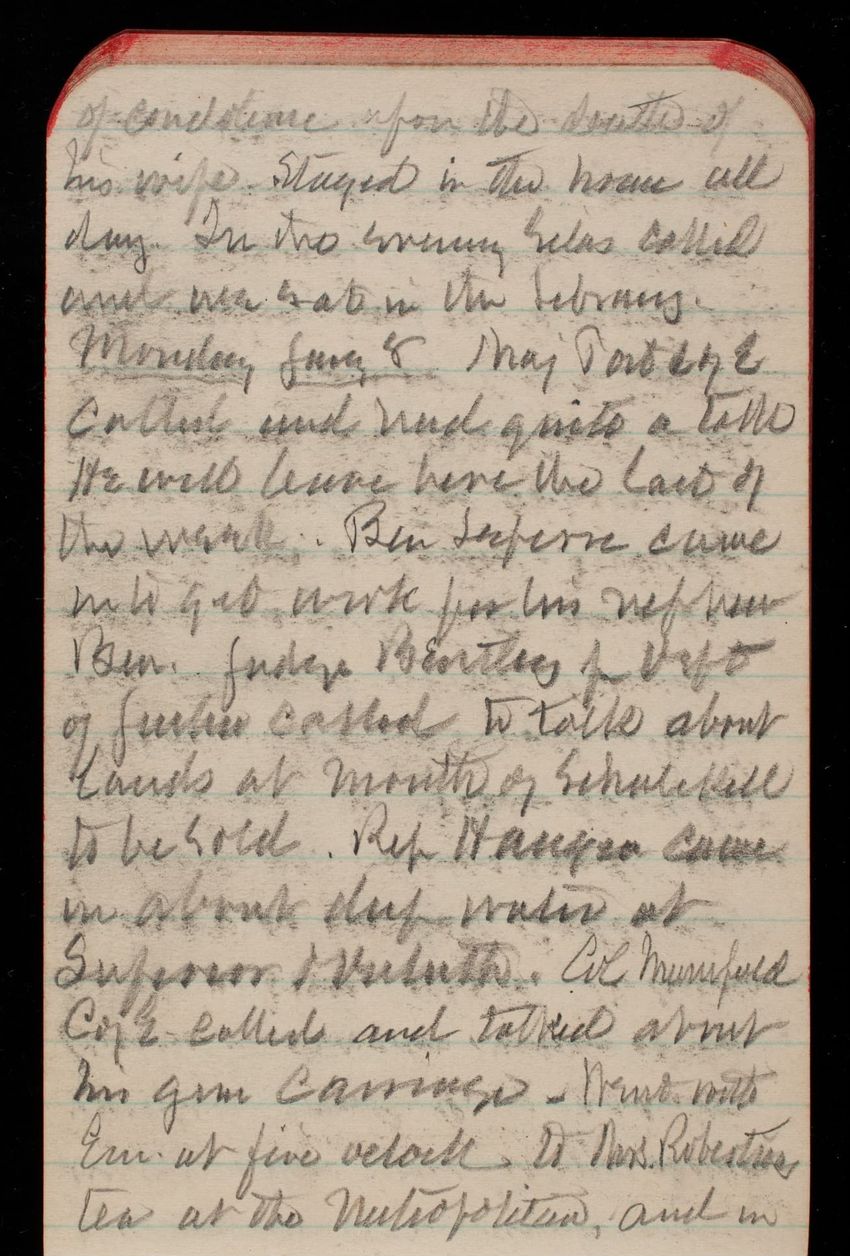 of condolence upon the death of
his wife. Stayed in the house all
day. In the evening Silas called
and we sat in the Library.
Monday Jany 8. Maj Post C of E
called and had quite a talk
He will leave here the last of
the week. Ben came
in to get work for his nephew
Ben. Judge Bentley fr Dept
of Justice called to talk about
lands at mouth of Schulkill
to be sold. Rep Haugen came
in about deep water at
Superior & Duluth. Col
C of E called and talked about
his gun carriage. Went with
Em. at five oclock to Mrs. Robertsons
tea at the Metropolitan, and in